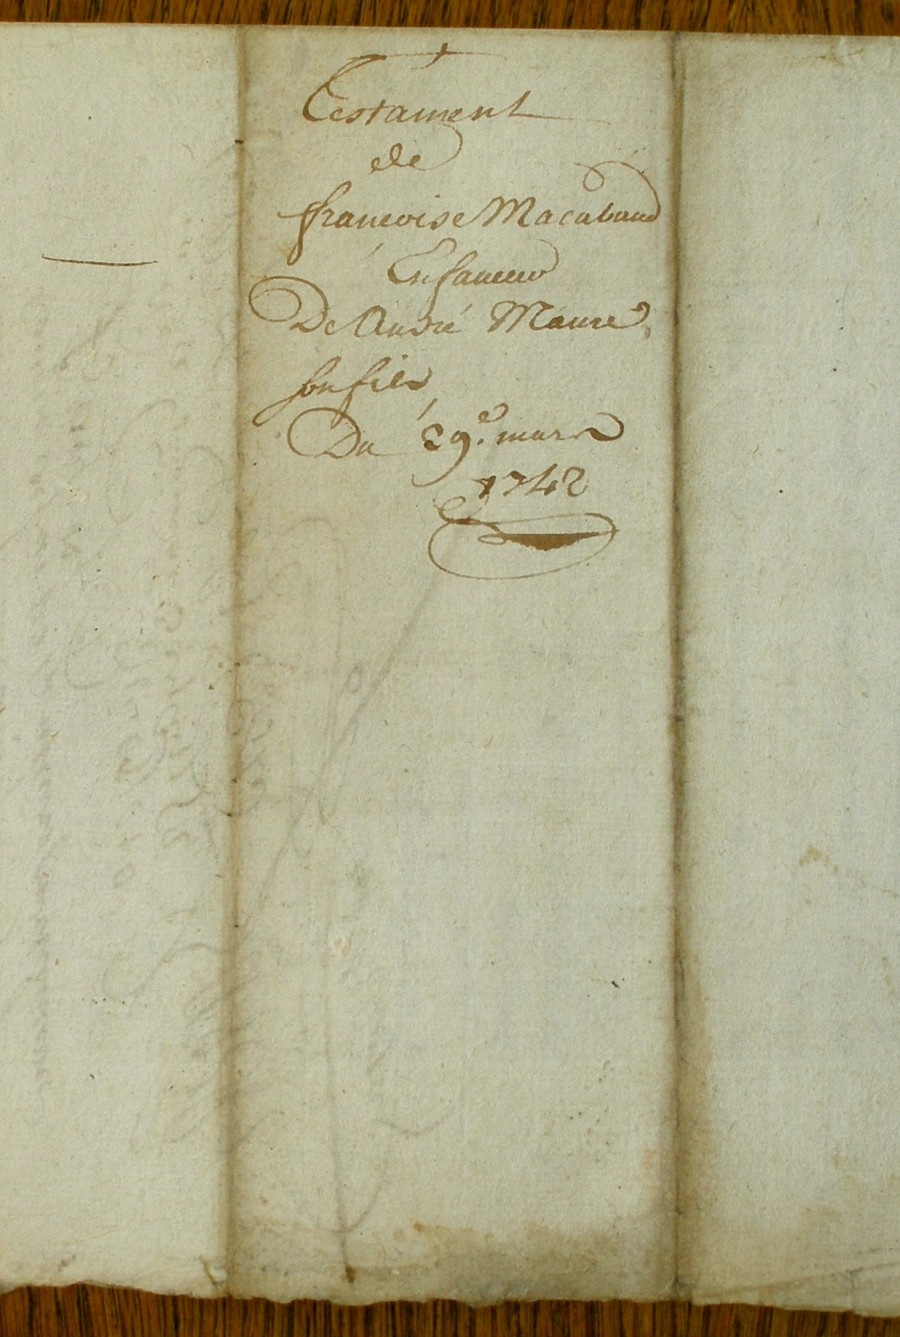 Testament
de
francoise Macabaud
En faueur
De André Maure
son fils
Du 29e. mars
1742